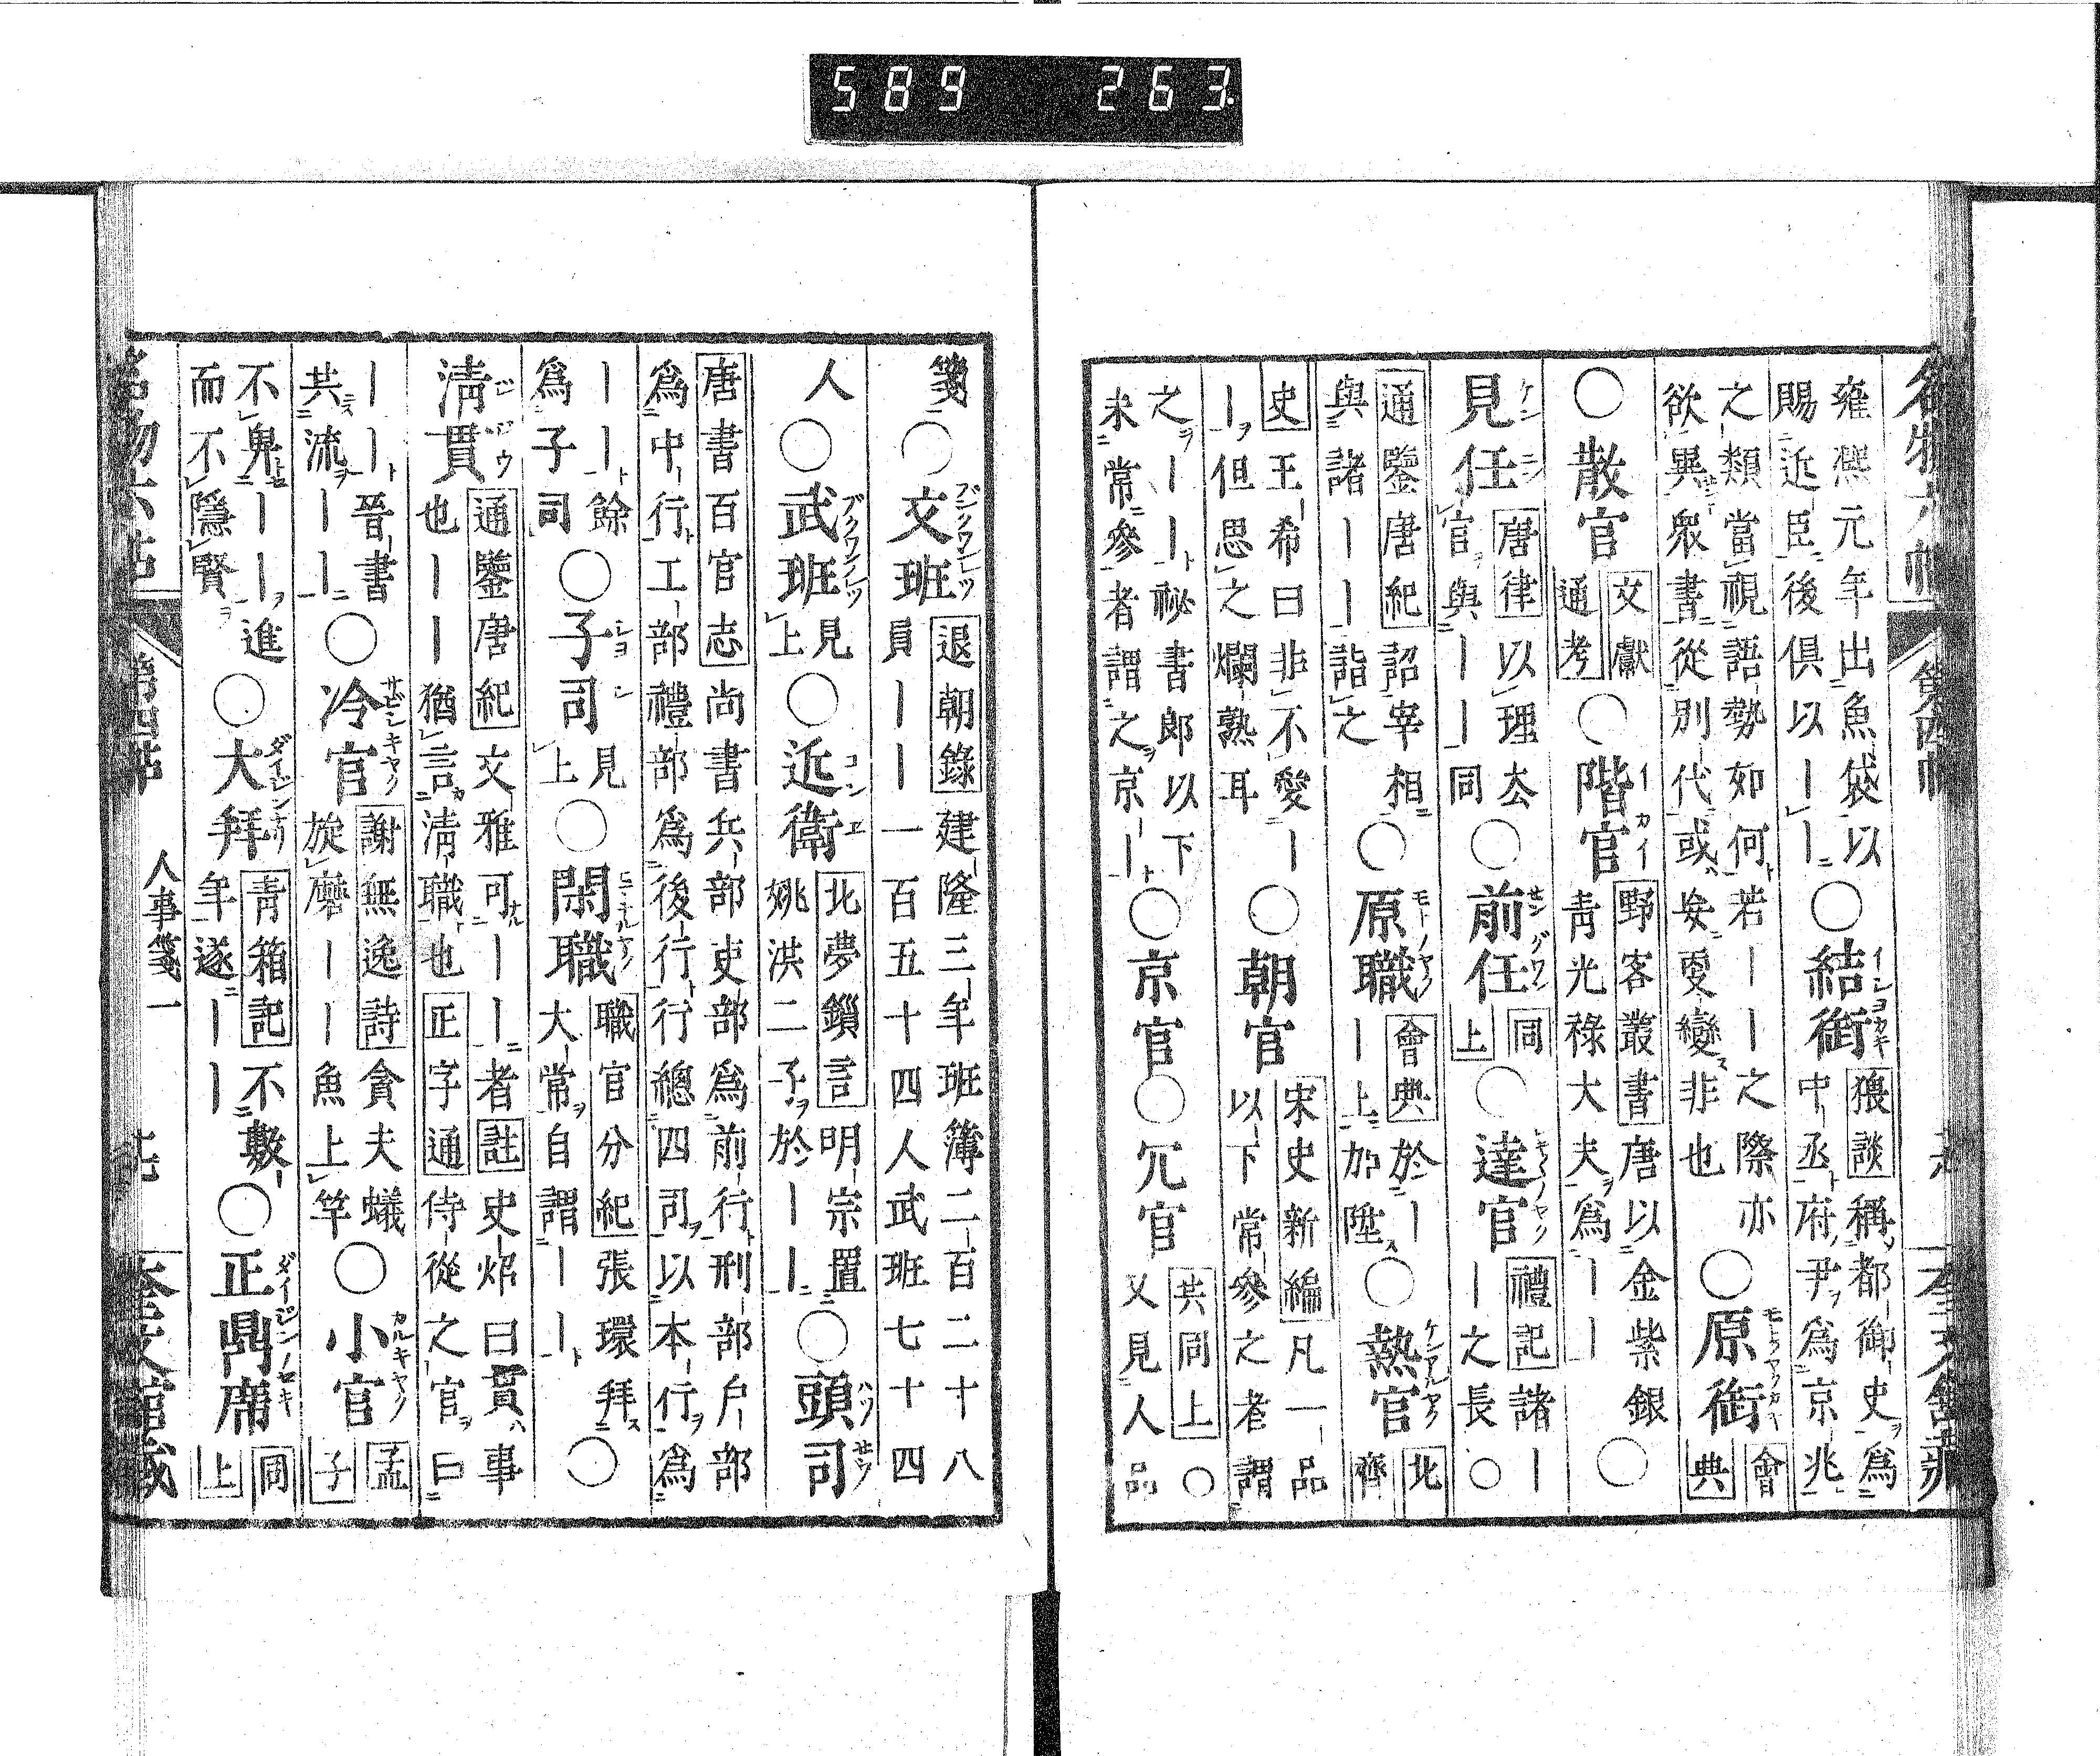 589 263
名物六帖 第四帖
雍熙元年出魚袋以
賜近臣後俱以｜｜○結銜猥談稱都御史爲
中丞府尹爲京兆
之類當視語勢如何若｜｜之際亦
欲異衆書從別代或妄更變非也○原銜會典
○散官文獻通考○階官野客叢書唐以金紫銀
青光祿大夫爲｜｜○
見任唐律以理去
官與｜｜同○前任同上○達官禮記諸｜
｜之長○
通鑒唐紀詔宰相
與諸｜｜詣之○原職會典於｜
｜上加陞○熱官北齊
史王希曰非不愛｜
｜但思之爛熟耳○朝官宋史新編凡一品
以下常參之者謂
之｜｜秘書郎以下
未常參者謂之京｜○京官○冗官共同上○
又見人品
箋○文班退朝錄建隆三年班簿二百二十八
員｜｜一百五十四人武班七十四
人○武班見上○近衛北夢鎖言明宗置
姚洪二子於｜｜○頭司
唐書百官志尚書兵部吏部爲前行刑部戶部
爲中行工部禮部爲後行行總四司以本行爲
｜｜餘
爲子司○子司見上○閑職職官分紀張環拜
大常自謂｜｜○
清貫通鑒唐紀文雅可｜｜者註史炤曰貫事
也｜｜猶言清職也正字通侍從之官曰
｜｜晉書
共流｜｜○冷官謝無逸詩貪夫蟻
旋磨｜｜魚上竿○小官孟子
不卑｜｜進
而不隱賢○大拜青箱記不數
年遂｜｜○正鼎席同上
名物六帖 第四帖 人事箋一 奎文館藏